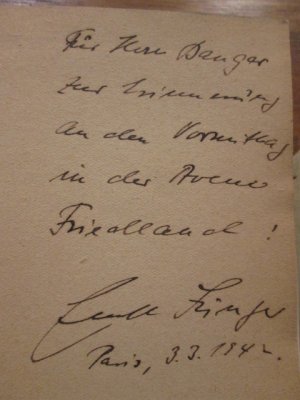 Für Herrn Bangar
zur Erinnerung
an den Vormittag
in der Avenue
Friedland!
Ernst Jünger
Paris, 3.3.1942.